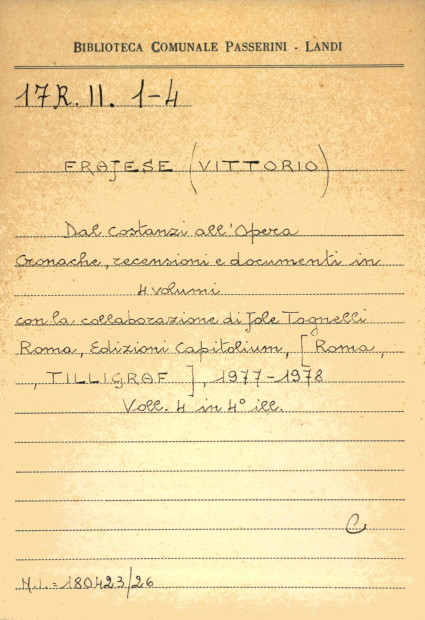 BIBLIOTECA COMUNALE PASSERINI - LANDI
17R. II. 1-4
FRAJESE (VITTORIO)
Dal Costanzi all'Opera
Cronache, recensioni e documenti in
4 volumi
con la collaborazione di Jole Tognelli
Roma, Edizioni Capitolium, [Roma,
, TILLIGRAF], 1977-1978
Voll. 4 in 4° ill.
C
N.I.=180423/26